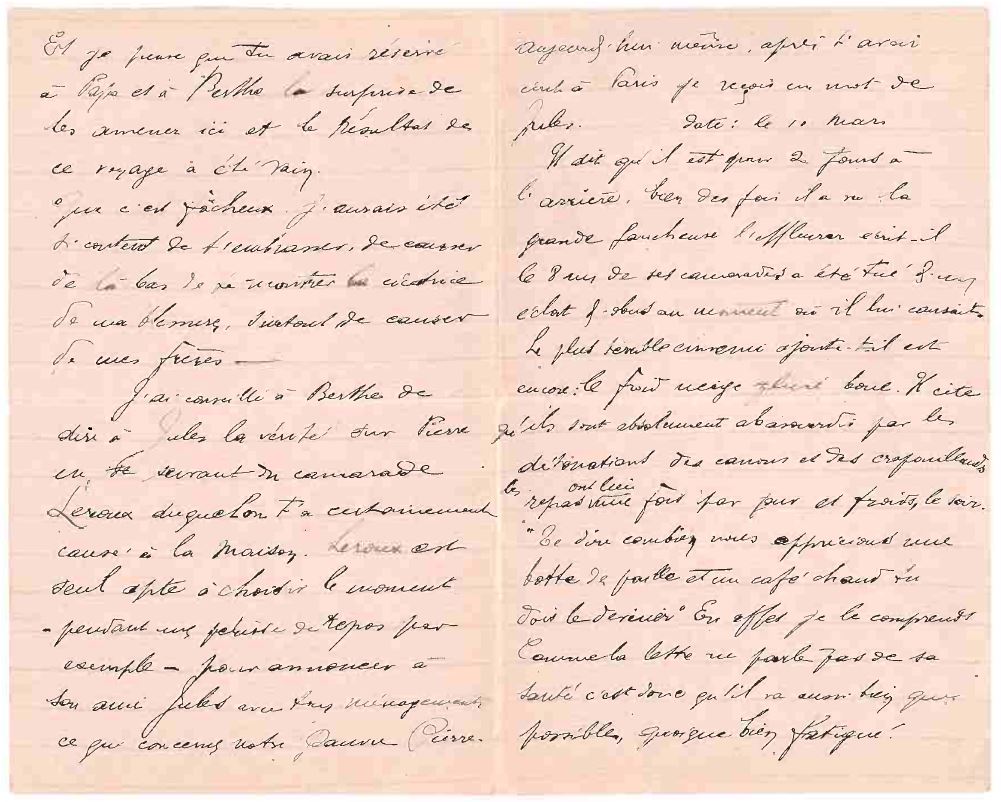 Et je pense que tu avais réservé
à Papa et à Berthe la surprise de
les amener ici et le résultat de
ce voyage à été vain.
Que c'est fâcheux. J'aurais été
si content de t'embrasser, de causer
de là bas de te montrer la cicatrice
de ma blessure, surtout de causer
de mes frères —
J'ai conseillé à Berthe de
dire à Jules la vérité sur Pierre
en se servant du camarade
Leroux duquel on t'a certainement
causé à la maison. Leroux est
seul apte à choisir le moment
- pendant une période de repos par
exemple - pour annoncer à
son ami Jules avec très ménagements
ce qui concerne notre pauvre Pierre.
aujourd'hui même, après t'avoir
écrit à Paris je reçois un mot de
Jules. daté : le 10 mars
Il dit qu'il est pour 2 jours à
l'arrière, bien des fois il a vu la
grande faucheuse l'effleurer écrit-il
le 8 un de ses camarades a été tué d'un
éclat d'obus au moment où il lui causait.
Le plus terrible ennemi ajoute-t-il est
encore : le froid neige boue. Il cite
qu'ils sont absolument abasourdis par les
détonations des canons et des crapouillauds
les repas ont lieu une fois par jour et froids, le soir.
"Te dire combien nous apprécions une
botte de paille et un café chaud tu
dois le deviner" En effet je le comprends
Comme la lettre ne parle pas de sa
santé c'est donc qu'il va aussi bien que
possible, quoique bien fatigué.